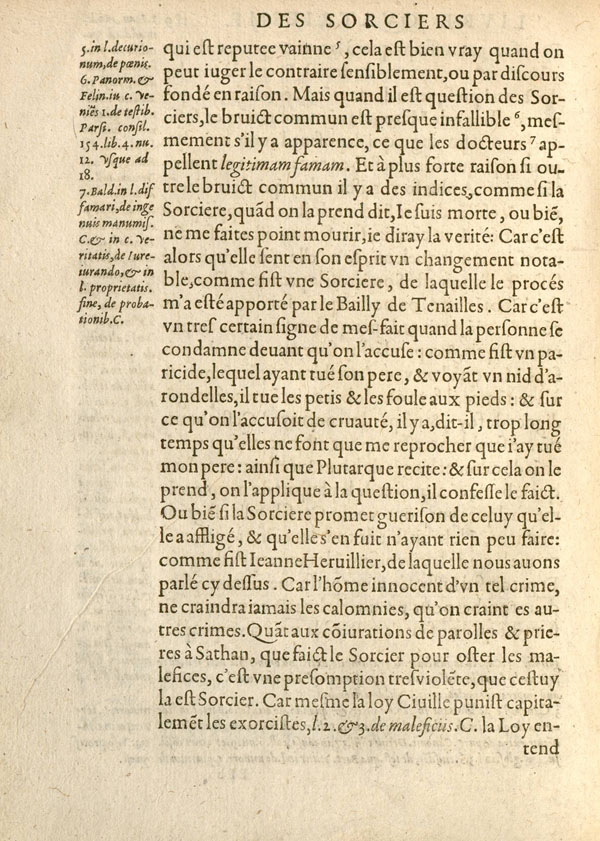 DES SORCIERS
5. in l. decurio-
num, de pœnis.
6. Panorm. &
Felin. in c. ve-
niẽs 1. de testib.
Parsi. consil.
154. lib. 4. nu.
12. vsque ad
18.
7. Bald. in l. dif
famari, de inge
nuis manumiſ.
C. & in c. ve-
ritatis, de Iure-
iurando, & in
l. proprietatis.
fine, de proba-
tionib. C.
qui eſt reputee vainne ⁵, cela eſt bien vray quand on
peut iuger le contraire ſenſiblement, ou par diſcours
fondé en raiſon. Mais quand il eſt queſtion des Sor-
ciers, le bruict commun eſt preſque infallible ⁶, meſ-
mement s'il y a apparence, ce que les docteurs ⁷ ap-
pellent legitimam famam. Et à plus forte raiſon ſi ou-
tre le bruict commun il y a des indices, comme ſi la
Sorciere, quãd on la prend dit, Ie ſuis morte, ou biẽ,
ne me faites point mourir, ie diray la verité: Car c'eſt
alors qu'elle ſent en ſon eſprit vn changement nota-
ble, comme fiſt vne Sorciere, de laquelle le procés
m'a eſté apporté par le Bailly de Tenailles. Car c'eſt
vn treſ certain ſigne de meſ-fait quand la perſonne ſe
condamne deuant qu'on l'accuſe: comme fiſt vn pa-
ricide, lequel ayant tué ſon pere, & voyãt vn nid d'a-
rondelles, il tue les petis & les foule aux pieds: & ſur
ce qu'on l'accuſoit de cruauté, il y a, dit-il, trop long
temps qu'elles ne font que me reprocher que i'ay tué
mon pere: ainſi que Plutarque recite: & ſur cela on le
prend, on l'applique à la queſtion, il confeſſe le faict.
Ou biẽ ſi la Sorciere promet gueriſon de celuy qu'el-
le a affligé, & qu'elle s'en fuit n'ayant rien peu faire:
comme fiſt Ieanne Heruillier, de laquelle nous auons
parlé cy deſſus. Car l'hõme innocent d'vn tel crime,
ne craindra iamais les calomnies, qu'on craint es au-
tres crimes. Quãt aux cõiurations de parolles & prie-
res à Sathan, que faict le Sorcier pour oſter les ma-
lefices, c'eſt vne preſomption treſviolẽte, que ceſtuy
la eſt Sorcier. Car meſme la loy Ciuille puniſt capita-
lemẽt les exorciſtes, l. 2. & 3. de maleficus. C. la Loy en-
tend